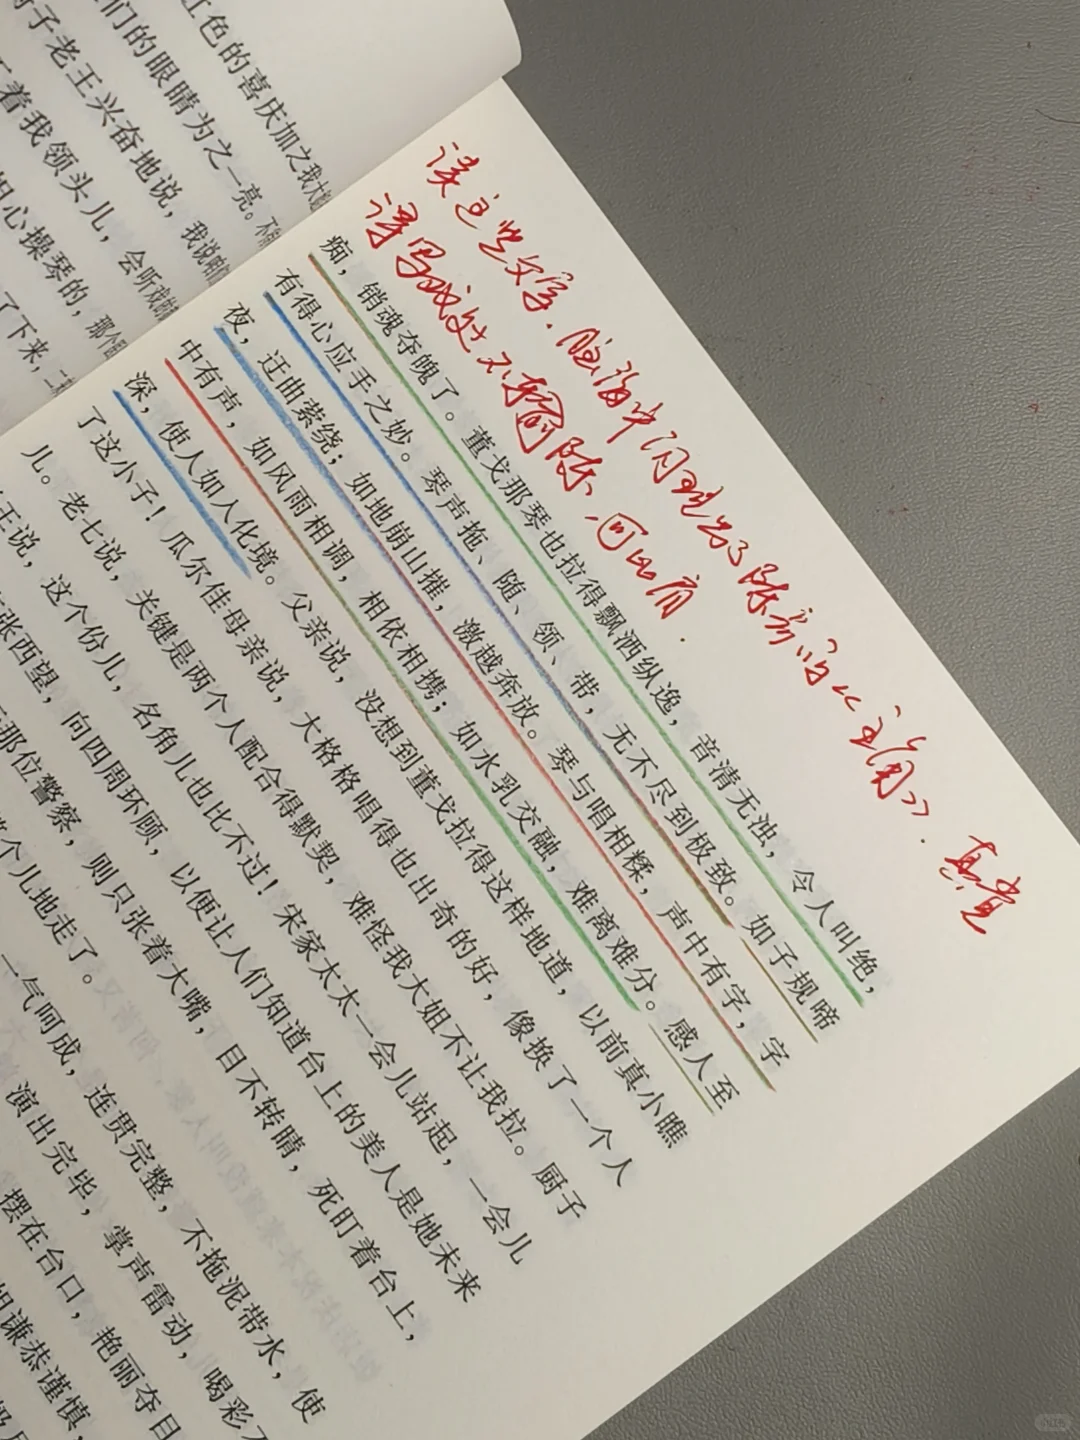 读这些文字.脑海中闪现出了陈彦的《主角》.真贵
得写戏处不输陈.可比肩.
痴，销魂夺魄了。董戈那琴也拉得飘洒纵逸，音清无浊，令人叫绝，
有得心应手之妙。琴声拖、随、领、带，无不尽到极致。如子规啼
夜，迂曲萦绕；如地崩山摧，激越奔放。琴与唱相糅，声中有字，字
中有声，如风雨相调，相依相携；如水乳交融，难离难分。感人至
深，使人如入化境。父亲说，没想到董戈拉得这样地道，以前真小瞧
了这小子！瓜尔佳母亲说，大格格唱得也出奇的好，像换了一个人
儿。老七说，关键是两个人配合得默契，难怪我大姐不让我拉。厨子
王说，这个份儿，名角儿也比不过！宋家太太一会儿站起，一会儿
张西望，向四周环顾，以便让人们知道台上的美人是她未来
那位警察，则只张着大嘴，目不转睛，死盯着台上，
个儿地走了。
一气呵成，连贯完整，不拖泥带水，使
演出完毕，掌声雷动，喝彩
摆在台口，艳丽夺目
姐谦恭谨慎，
红色的喜庆加之我大
们的眼睛为之一亮。不
厨子老王兴奋地说，我说咱
着我领头儿，会听戏的
心操琴的，那个
了下来，二